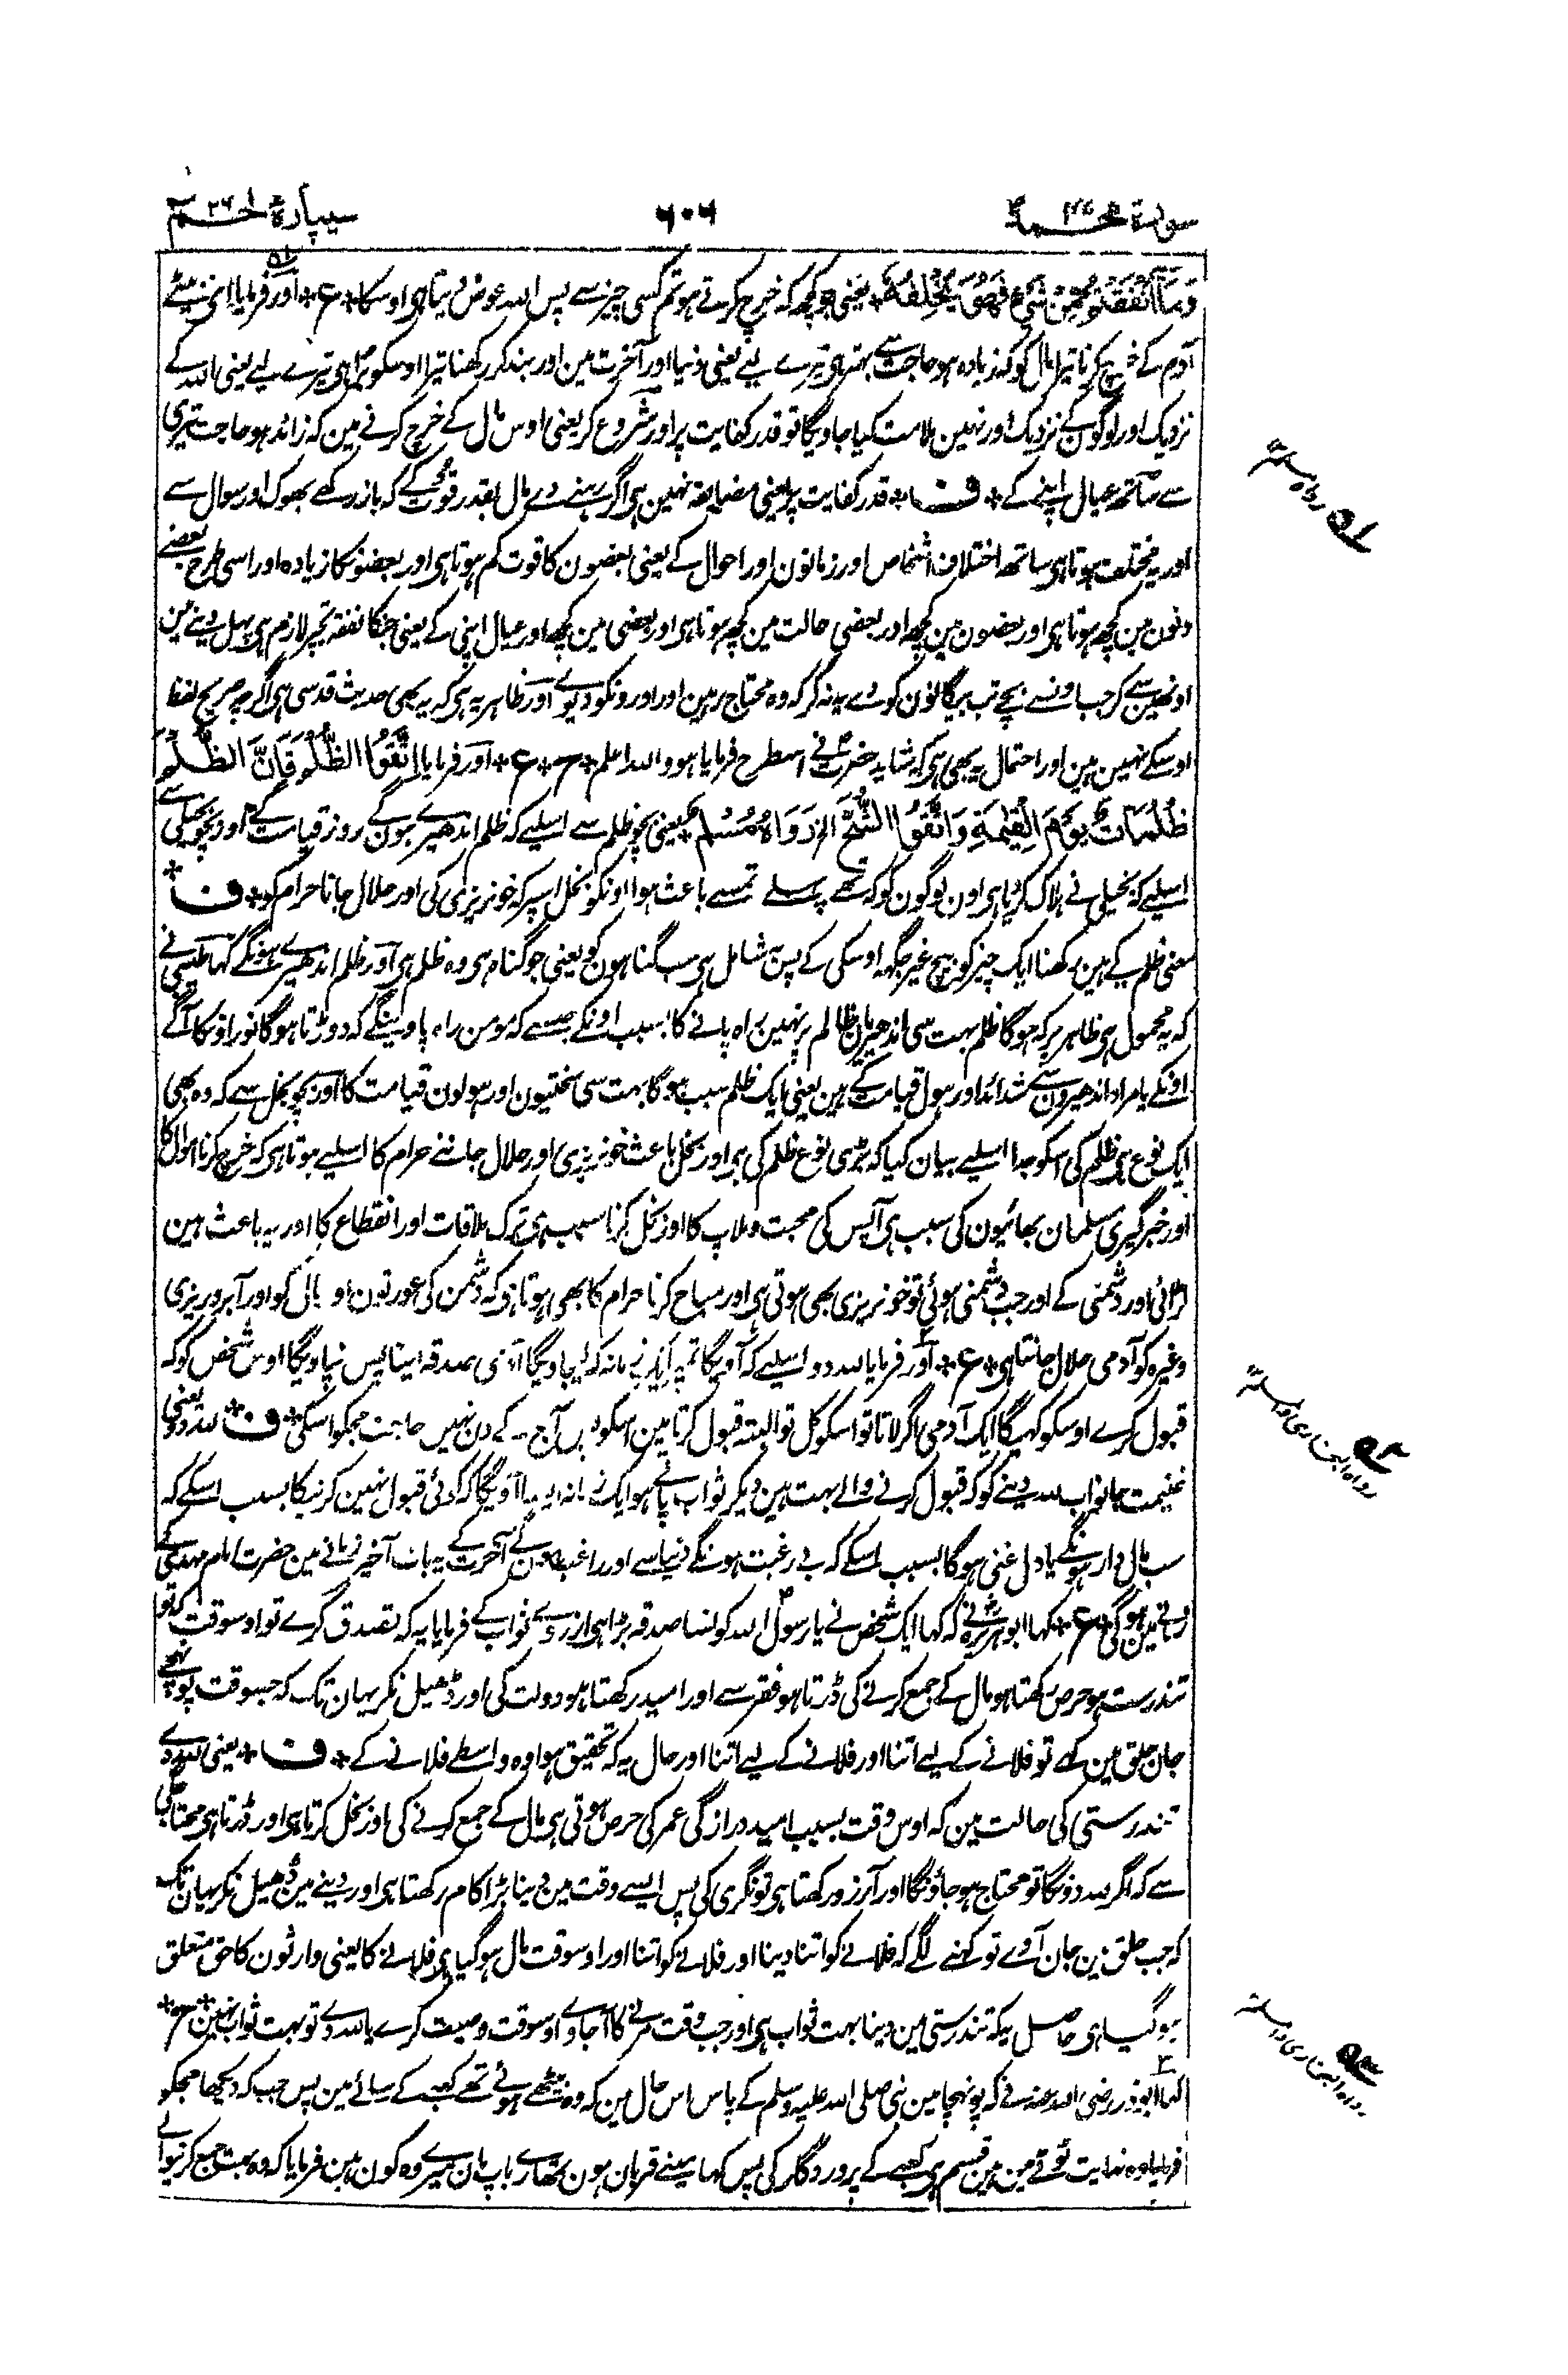 سورۃ محمد ۴۷
۶۰۶
سیپارۂ حم ۲۶
وَمَا أَنفَقْتُم مِّن شَيْءٍ فَهُوَ يُخْلِفُهُ * یعنی جو کچھ کہ خرچ کرتے ہو تم کسی چیز سے پس اللہ عوض دیتا ہی اوسکا * ع * اور فرمایا ای بیٹے
آدم کے خرچ کرنا تیرا مال کو کہ زیادہ ہو حاجت سے بہتر ہی تیرے لیے یعنی دنیا اور آخرت مین اور بند کر رکھنا تیرا اوسکو برا ہی تیرے لیے یعنی اللہ کے
نزدیک اور لوگون کے نزدیک اور نہین ملامت کیا جاویگا تو قدر کفایت پر اور شروع کر یعنی اوس مال کے خرچ کرنے مین کہ زائد ہو حاجت تیری
سے ساتھ عیال اپنے کے * ف * قدر کفایت پر یعنی مضایقہ نہین ہی اگر رہنے دے مال بقدر قوت کے کہ باز رکھے بھوک اور سوال سے
اور یہ مختلف ہوتا ہی ساتھ اختلاف اشخاص اور زمانون اور احوال کے یعنی بعضون کا قوت کم ہوتا ہی اور بعضونکا زیادہ اور اسی طرح بعضے
دنون مین کچھ ہوتا ہی اور بعضون مین کچھ اور بعضی حالت مین کچھ ہوتا ہی اور بعضی مین کچھ اور عیال اپنی کے یعنی جنکا نفقہ تجپر لازم ہی پہل دینے مین
اونھین سے کر جب اونسے بچے تب بیگانون کو دے یہ نہ کر کہ وہ محتاج رہین اور اورونکو دیوے اور ظاہر یہ ہی کہ یہ بھی حدیث قدسی ہی اگرچہ صریح لفظ
اوسکے نہین ہین اور احتمال یہ بھی ہی کہ شاید حضرت نے اسطرح فرمایا ہو واللہ اعلم * ح * ع * اور فرمایا اِتَّقُوا الظُّلْمَ فَإِنَّ الظُّلْمَ
ظُلُمَاتٌ يَوْمَ الْقِيٰمَةِ وَاتَّقُوا الشُّحَّ الخ رَوَاهُ مُسْلِم * یعنی بچو ظلم سے اسلیے کہ ظلم اندھیرے ہون گے روز قیامت کے اور بچو بخیلی سے
اسلیے کہ بخیلی نے ہلاک کر دیا ہی اون لوگون کو کہ تھے پہلے تمسے باعث ہوا اونکو بخل اسپر کہ خونریزی کی اور حلال جانا حرام کو * ف *
معنی ظلم کے ہین رکھنا ایک چیز کو بیچ غیر جگہہ اوسکی کے پس شامل ہی سب گناہون کو یعنی جو گناہ ہی وہ ظلم ہی اور ظلم اندھیرے ہونگے کہا طیبی نے
کہ یہ محمول ہی ظاہر پر کہ ہوگا ظلم بہت سی اندھیریان ظالم پر نہین راہ پانے کا بسبب اونکے جیسے کہ مومن راہ پاوینگے کہ دوڑتا ہوگا نور اونکا آگے
اونکے یا مراد اندھیرون سے شدائد اور ہول قیامت کے ہین یعنی ایک ظلم سبب ہوگا بہت سی سختیون اور ہولون قیامت کا اور بچو بخل سے کہ وہ بھی
ایک نوع ہی ظلم کی اسکو جدا اسلیے بیان کیا کہ بڑی نوع ظلم کی ہی اور بخل باعث خونریزی اور حلال جاننے حرام کا اسلیے ہوتا ہی کہ خرچ کرنا اموال کا
اور خبر گیری مسلمان بھائیون کی سبب ہی آپس کی محبت و ملاپ کا اور بخل کرنا سبب ہی ترک ملاقات اور انقطاع کا اور یہ باعث ہین
لڑائی اور دشمنی کے اور جب دشمنی ہوئی تو خونریزی بھی ہوتی ہی اور مباح کرنا حرام کا بھی ہوتا ہی کہ دشمن کی عورتون او مال کو اور آبرو ریزی
وغیرہ کو آدمی حلال جانتا ہی * ع * اور فرمایا للہ دو اسلیے کہ آویگا تمپر ایک زمانہ کہ لیجاویگا آدمی صدقہ اپنا پس نپاویگا اوس شخص کو کہ
قبول کرے اوسکو کہیگا ایک آدمی اگر لاتا تو اسکو کل تو البتہ قبول کرتا مین اسکو پس آج کے دن نہین حاجت مجکو اسکی * ف * للہ دو یعنی
غنیمت جانو اب للہ دینے کو کہ قبول کرنے والے بہت ہین دیکر ثواب پاتے ہو ایک زمانہ ایسا آویگا کہ کوئی قبول نہین کرنیکا بسبب اسکے کہ
سب مال دار ہونگے یا دل غنی ہوگا بسبب اسکے کہ بے رغبت ہونگے دنیا سے اور راغب ہون گے آخرت کے یہ بات آخیر زمانے مین حضرت امام مہدی کے
وقت مین ہوگی * ع * کہا ابو ہریرہ نے کہ کہا ایک شخص نے یا رسول اللہ کونسا صدقہ بڑا ہی از روے ثواب کے فرمایا یہ کہ تصدق کرے تو اوسوقت کہ تو
تندرست ہو حرص رکھتا ہو مال کے جمع کرنے کی ڈرتا ہو فقر سے اور امید رکھتا ہو دولت کی اور ڈھیل نکر یہان تک کہ جسوقت پہونچے
جان حلق مین کہے تو فلانے کے لیے اتنا اور فلانے کے لیے اتنا اور حال یہ کہ تحقیق ہوا وہ واسطے فلانے کے * ف * یعنی للہ دے
تندرستی کی حالت مین کہ اوس وقت بسبب امید درازگی عمر کی حرص ہوتی ہی مال کے جمع کرنے کی اور بخل کرتا ہی اور ڈرتا ہی محتاجگی
سے کہ اگر للہ دونگا تو محتاج ہو جاؤنگا اور آرزو رکھتا ہی تونگری کی پس ایسے وقت مین دینا بڑا کام رکھتا ہی اور دینے مین ڈھیل نکر یہان تک
کہ جب حلق مین جان آوے تو کہنے لگے کہ فلانے کو اتنا دینا اور فلانے کو اتنا اور اوسوقت مال ہوگیا ہی فلانے کا یعنی وارثون کا حق متعلق
ہوگیا ہی حاصل یہ کہ تندرستی مین دینا بہت ثواب ہی اور جب وقت مرنے کا آجاوے اوسوقت وصیت کرے یا للہ دے تو بہت ثواب نہین * ع *
کہا ابوذر رضی اللہ عنہ نے کہ پونہچا مین نبی صلی اللہ علیہ وسلم کے پاس اس حال مین کہ وہ بیٹھے ہوئے تھے کعبہ کے سائے مین پس جب کہ دیکھا مجکو
فرمایا وہ نہایت ٹوٹے مین ہین قسم ہی کعبے کے پروردگار کی پس کہا مینے قربان ہون تمھارے باپ مان میرے وہ کون ہین فرمایا کہ وہ بہت جمع کرنیوالے
۱ رواہ مسلم
۲ رواہ البخاری ومسلم
۳ رواہ البخاری ومسلم